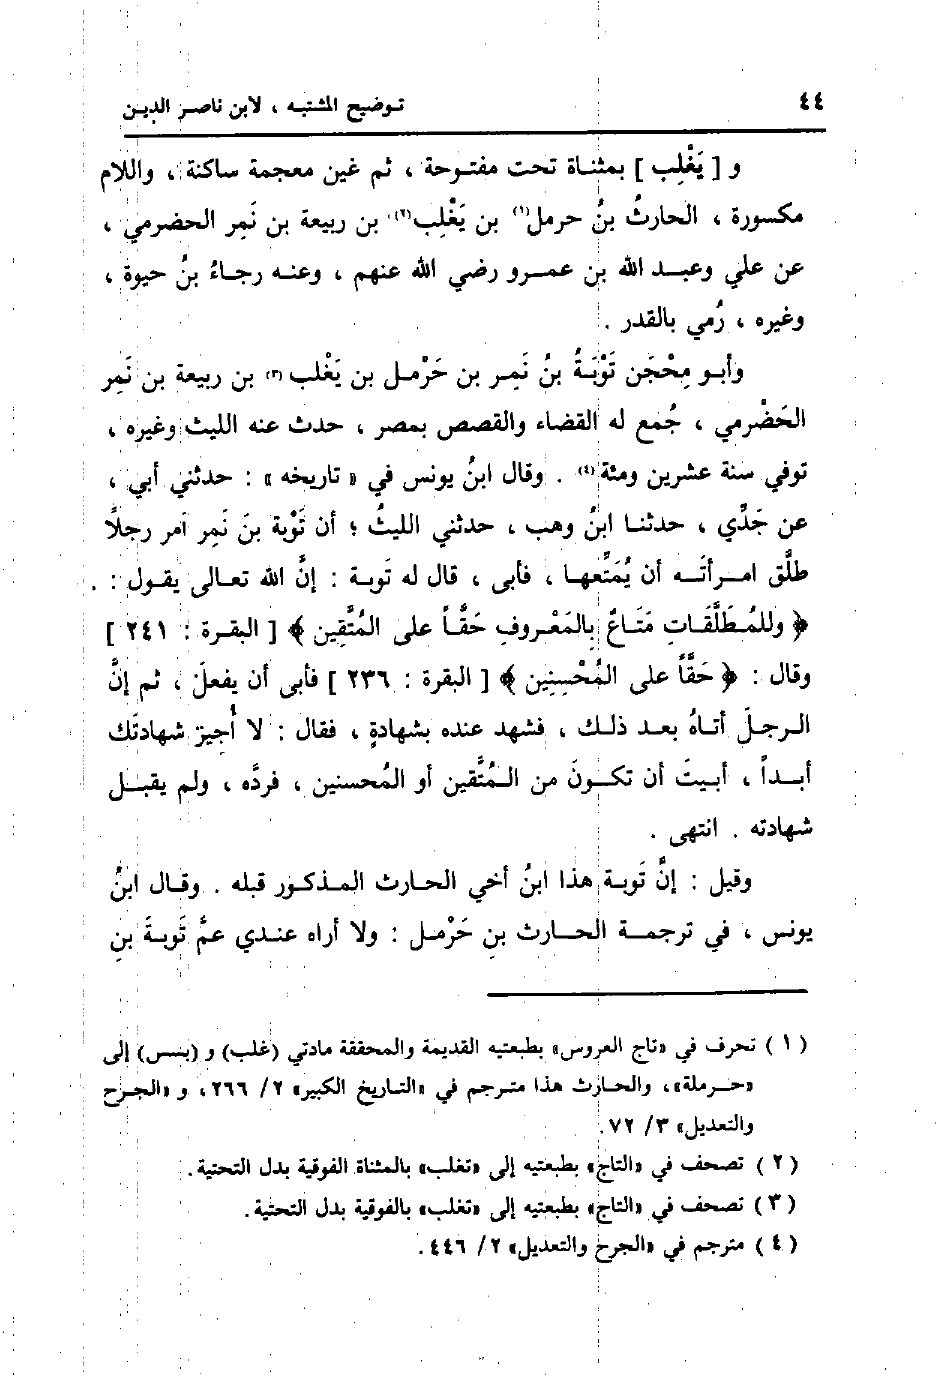 ٤٤ توضيح المشتبه ، لابن ناصر الدين
و [ يَغْلِب ] بمثناة تحت مفتوحة ، ثم غين معجمة ساكنة ، واللام
مكسورة ، الحارثُ بنُ حرمل(١) بن يَغْلِب(٢) بن ربيعة بن نَمِر الحضرمي ،
عن علي وعبد الله بن عمرو رضي الله عنهم ، وعنه رجاءُ بنُ حيوة ،
وغيره ، رُمي بالقدر .
وأبو مِحْجَن تَوْبَةُ بنُ نَمِر بن حَرْمل بن يَغْلب(٣) بن ربيعة بن نَمِر
الحَضْرمي ، جُمع له القضاء والقصص بمصر ، حدث عنه الليث وغيره ،
توفي سنة عشرين ومئة(٤) . وقال ابنُ يونس في « تاريخه » : حدثني أبي ،
عن جَدِّي ، حدثنا ابنُ وهب ، حدثني الليثُ ؛ أن تَوْبة بنَ نَمِر آمر رجلاً
طلَّق امرأتَه أن يُمَتِّعها ، فأبى ، قال له تَوبة : إنَّ الله تعالى يقول :
﴿ وللمُطَلَّقَاتِ مَتَاعٌ بِالمَعْروفِ حَقَّاً على المُتَّقِين ﴾ [ البقرة : ٢٤١ ]
وقال : ﴿ حَقَّاً على المُحْسِنِين ﴾ [ البقرة : ٢٣٦ ] فأبى أن يفعلَ ، ثم إنَّ
الرجلَ أتاهُ بعد ذلك ، فشهد عنده بشهادةٍ ، فقال : لا أُجيز شهادتَك
أبداً ، أبيتَ أن تكونَ من المُتَّقين أو المُحسنين ، فردَّه ، ولم يقبل
شهادته . انتهى .
وقيل : إنَّ تَوبة هذا ابنُ أخي الحارث المذكور قبله . وقال ابنُ
يونس ، في ترجمة الحارث بنِ حَرْمل : ولا أراه عندي عمَّ تَوبةَ بنِ
( ١ ) تحرف في «تاج العروس» بطبعتيه القديمة والمحققة مادتي (غلب) و (بسس) إلى
«حرملة»، والحارث هذا مترجم في «التاريخ الكبير» ٢/ ٢٦٦، و «الجرح
والتعديل» ٣/ ٧٢.
( ٢ ) تصحف في «التاج» بطبعتيه إلى «تغلب» بالمثناة الفوقية بدل التحتية.
( ٣ ) تصحف في «التاج» بطبعتيه إلى «تغلب» بالفوقية بدل التحتية.
( ٤ ) مترجم في «الجرح والتعديل» ٢/ ٤٤٦.